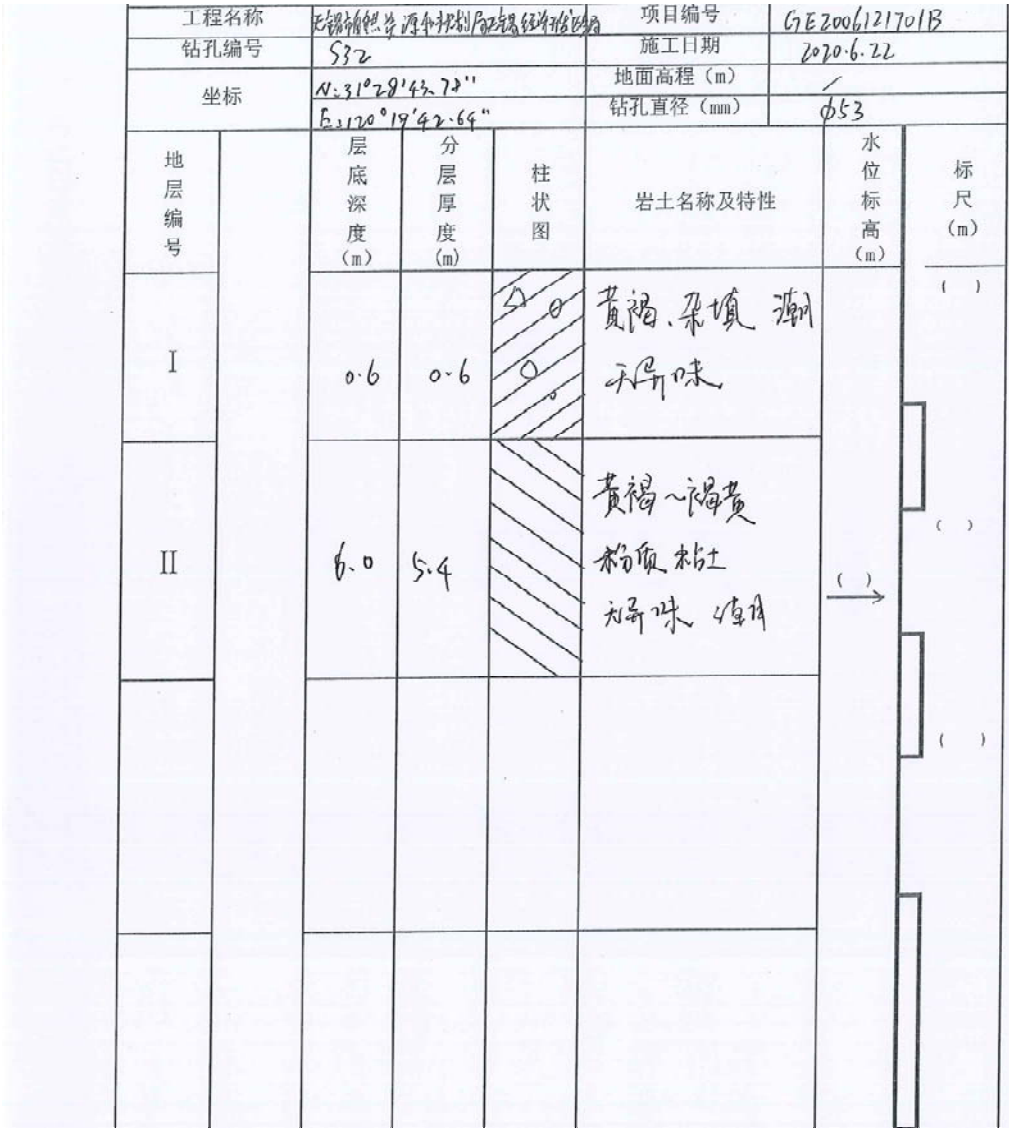 工程名称 无锡市自然资源和规划局无锡经济开发区分局 项目编号 GE2006121701B
钻孔编号 S32 施工日期 2020.6.22
坐标 N:31°28'43.78" 地面高程（m） /
E:120°19'42.64" 钻孔直径（mm） φ53
地层编号 层底深度（m） 分层厚度(m) 柱状图 岩土名称及特性 水位标高（m） 标尺（m）
( )
I 0.6 0.6 黄褐、杂填 潮
无异味
II 6.0 5.4 黄褐~褐黄
( )
粉质粘土
( )
无异味 潮
( )